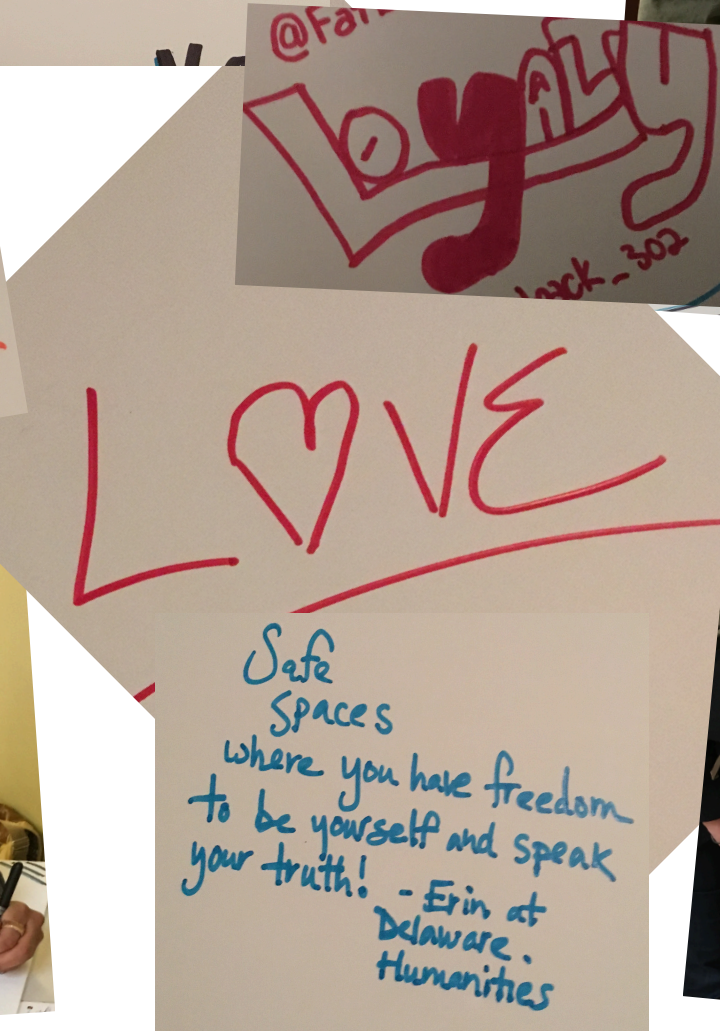 LOYALTY
_302
LOVE
Safe
spaces
where you have freedom
to be yourself and speak
your truth! - Erin at
Delaware.
Humanities